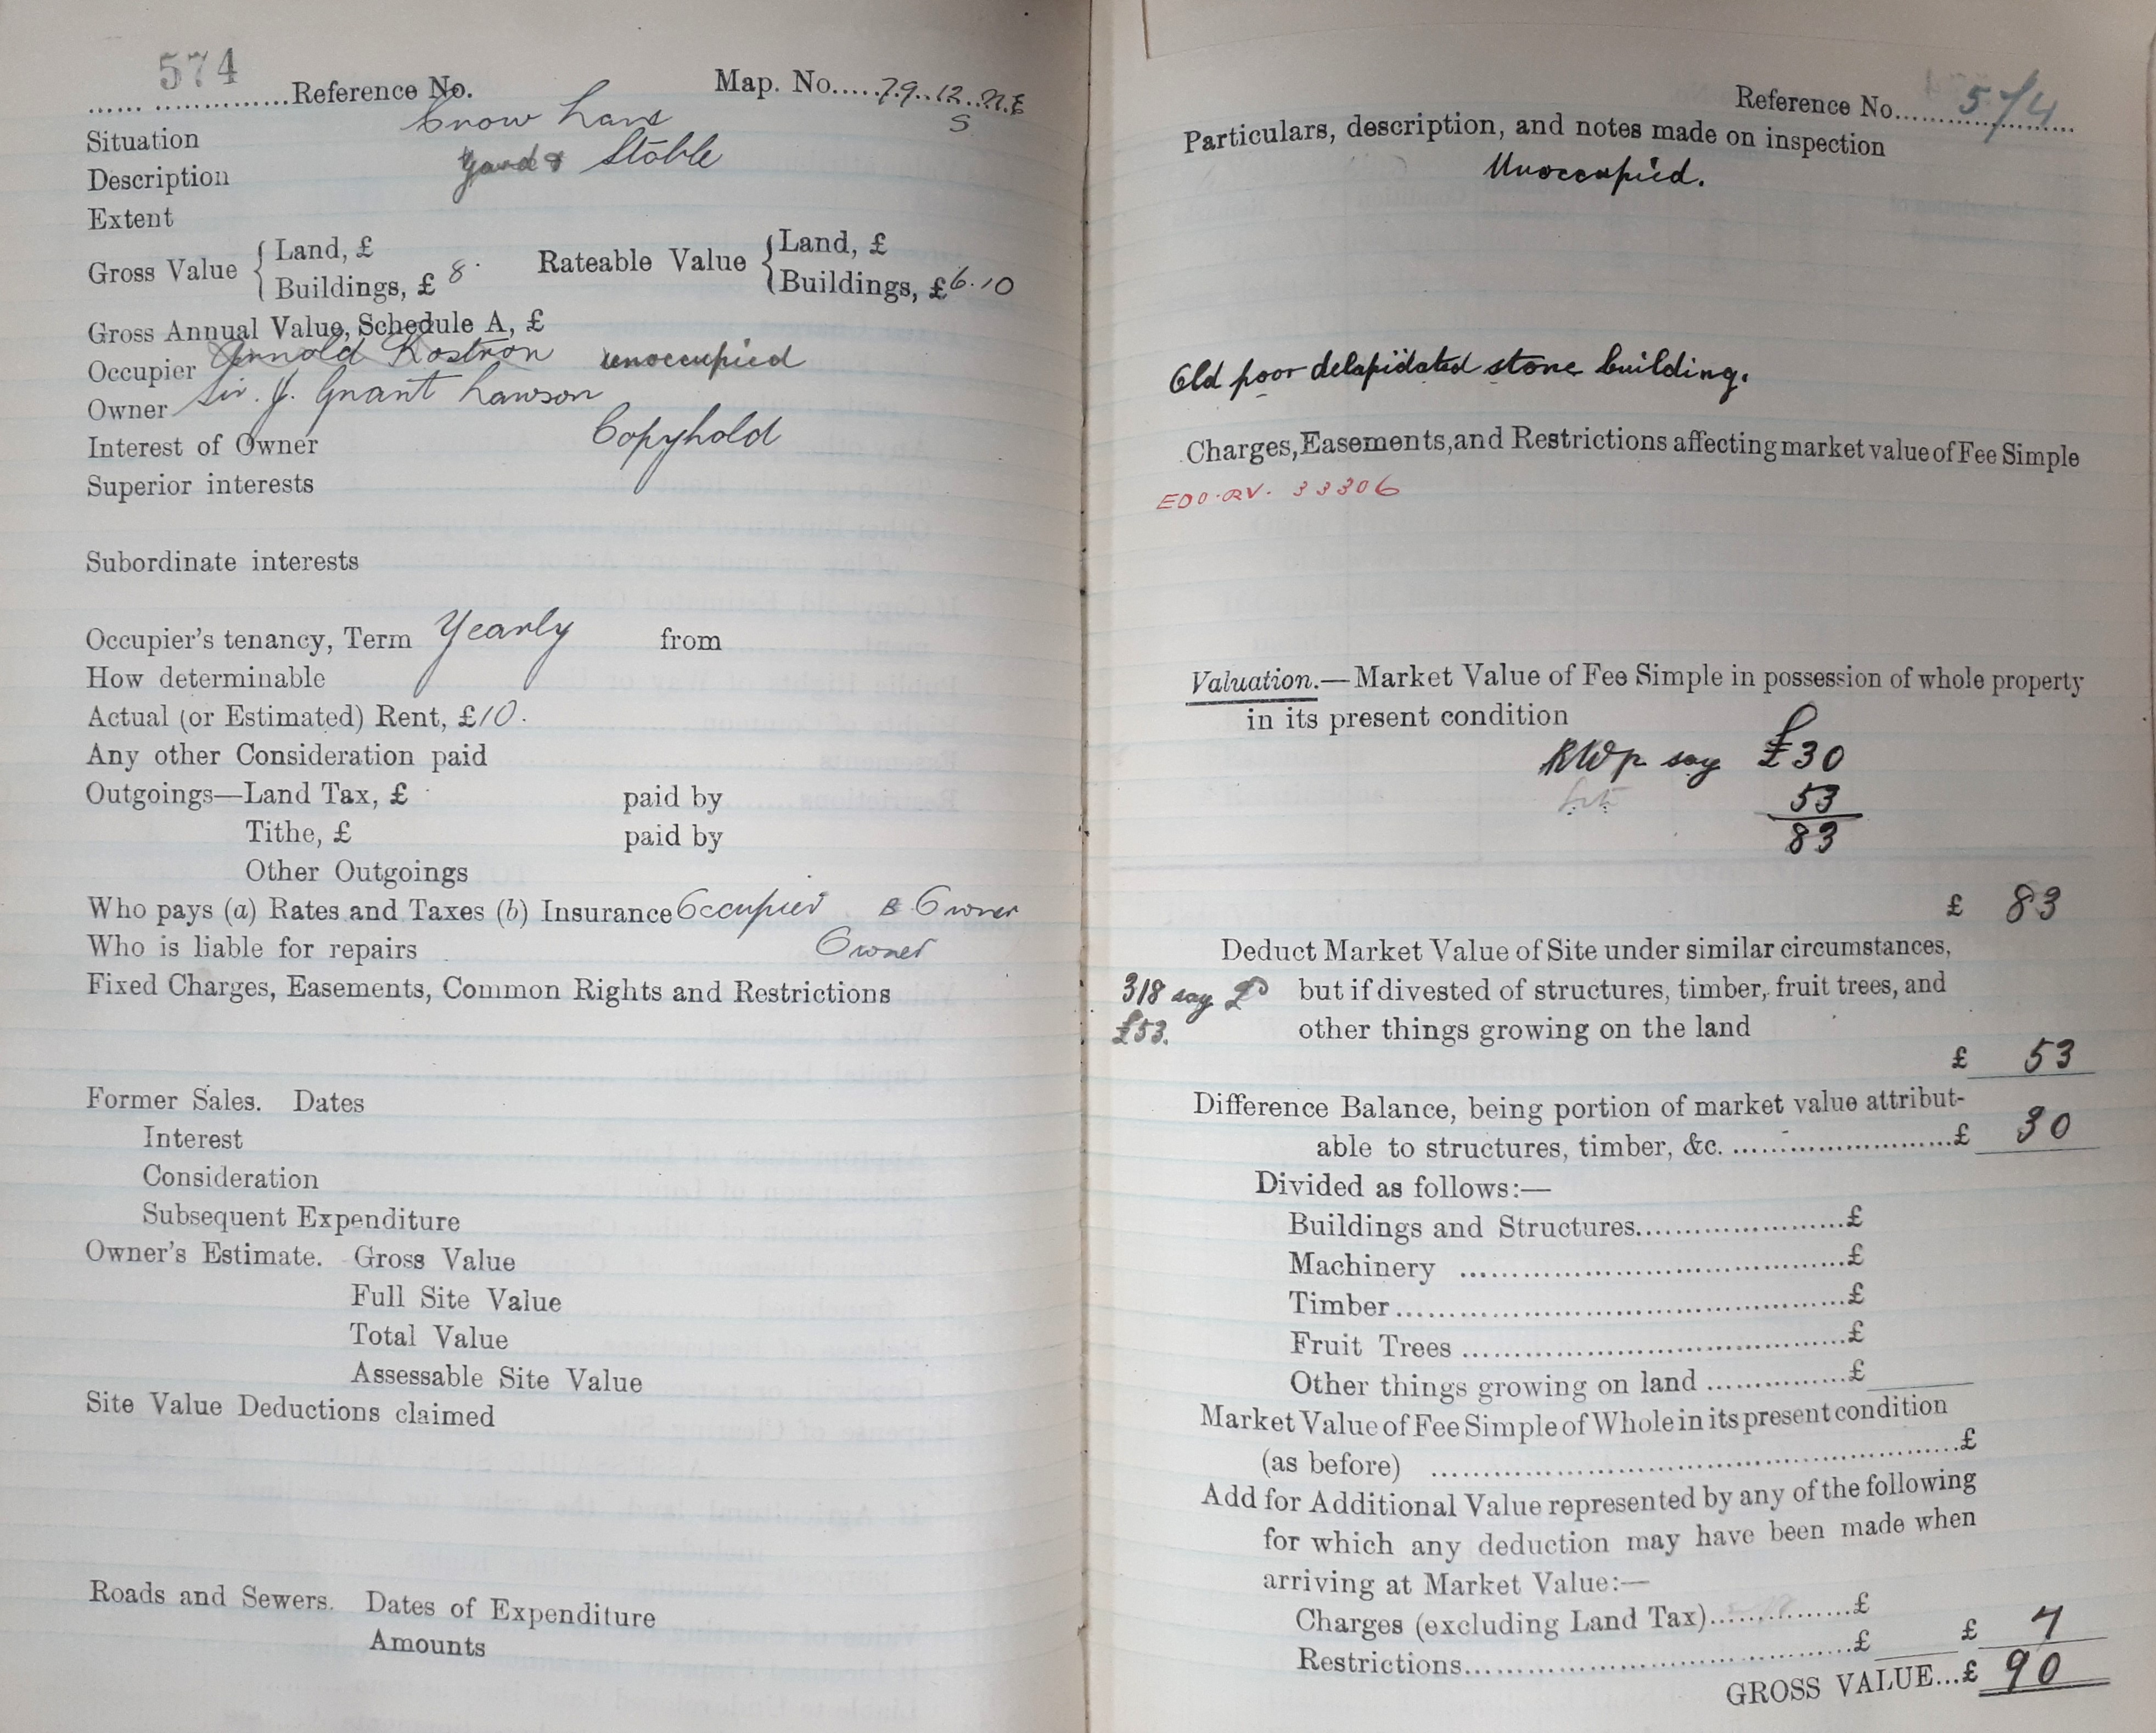 574
Reference No. Map. No. 79.12.N.E
S
Situation Crow Lane
Description Yard & Stable
Extent
Gross Value { Land, £ Rateable Value { Land, £
Buildings, £ 8. Buildings, £ 6.10
Gross Annual Value, Schedule A, £
Occupier Arnold Rostron unoccupied
Owner Sir. J. Grant Lawson
Interest of Owner Copyhold
Superior interests
Subordinate interests
Occupier's tenancy, Term Yearly from
How determinable
Actual (or Estimated) Rent, £10.
Any other Consideration paid
Outgoings—Land Tax, £ paid by
Tithe, £ paid by
Other Outgoings
Who pays (a) Rates and Taxes (b) Insurance Occupier B Owner
Who is liable for repairs Owner
Fixed Charges, Easements, Common Rights and Restrictions
Former Sales. Dates
Interest
Consideration
Subsequent Expenditure
Owner's Estimate. Gross Value
Full Site Value
Total Value
Assessable Site Value
Site Value Deductions claimed
Roads and Sewers. Dates of Expenditure
Amounts
Reference No. 574
Particulars, description, and notes made on inspection
Unoccupied.
Old poor delapidated stone building.
Charges, Easements, and Restrictions affecting market value of Fee Simple
EDO.RV. 33306
Valuation.—Market Value of Fee Simple in possession of whole property
in its present condition
RWP say £30
53
83
£ 83
Deduct Market Value of Site under similar circumstances,
318 say but if divested of structures, timber, fruit trees, and
£53. other things growing on the land
£ 53
Difference Balance, being portion of market value attribut-
able to structures, timber, &c. £ 30
Divided as follows:—
Buildings and Structures £
Machinery £
Timber £
Fruit Trees £
Other things growing on land £
Market Value of Fee Simple of Whole in its present condition
(as before) £
Add for Additional Value represented by any of the following
for which any deduction may have been made when
arriving at Market Value:—
Charges (excluding Land Tax) £
Restrictions £ £ 7
GROSS VALUE...£ 90